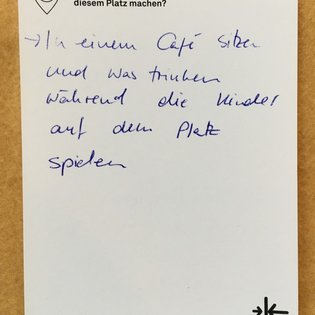 diesem Platz machen?
→ In einem Café sitzen
und was trinken
während die Kinder
auf dem Platz
spielen